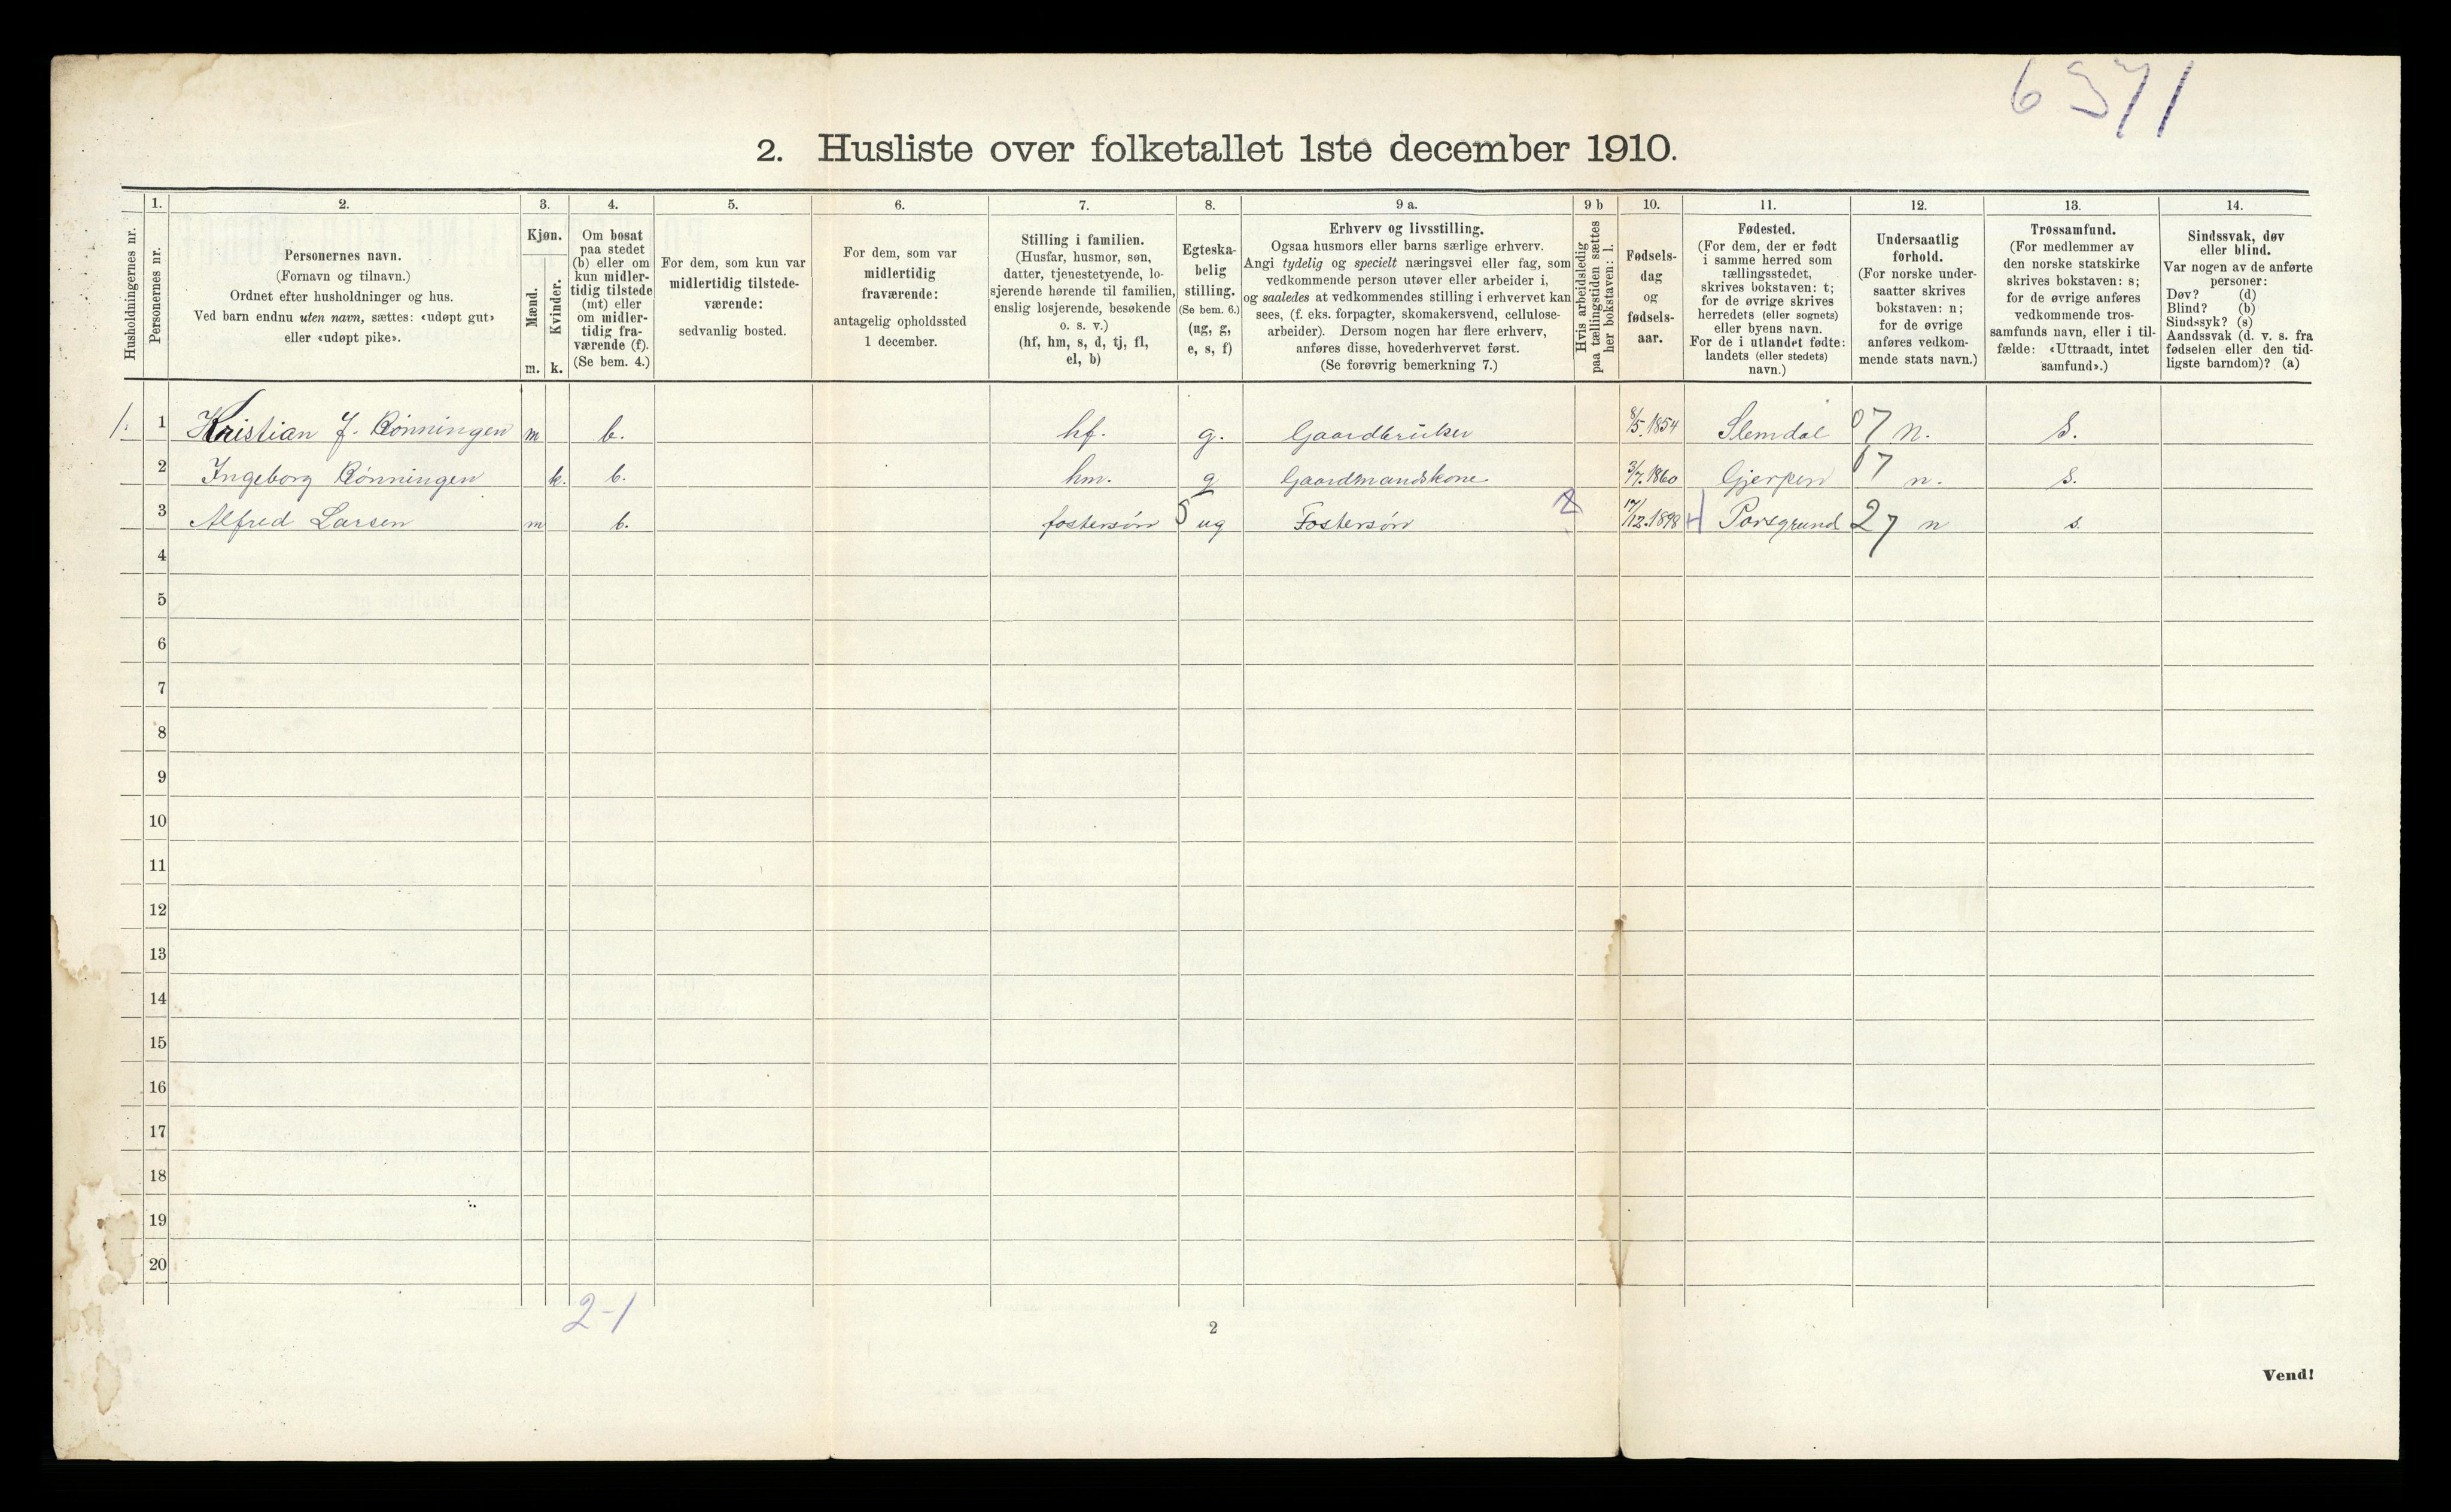 6571
2. Husliste over folketallet 1ste december 1910.
Husholdningernes nr.
1.
Personernes nr.
2.
Personernes navn.
(Fornavn og tilnavn.)
Ordnet efter husholdninger og hus.
Ved barn endnu uten navn, sættes: «udøpt gut»
eller «udøpt pike».
3.
Kjøn.
Mænd.
Kvinder.
m. k.
4.
Om bosat
paa stedet
(b) eller om
kun midler-
tidig tilstede
(mt) eller
om midler-
tidig fra-
værende (f).
(Se bem. 4.)
5.
For dem, som kun var
midlertidig tilstede-
værende:
sedvanlig bosted.
6.
For dem, som var
midlertidig
fraværende:
antagelig opholdssted
1 december.
7.
Stilling i familien.
(Husfar, husmor, søn,
datter, tjenestetyende, lo-
sjerende hørende til familien,
enslig losjerende, besøkende
o. s. v.)
(hf, hm, s, d, tj, fl,
el, b)
8.
Egteska-
belig
stilling.
(Se bem. 6.)
(ug, g,
e, s, f)
9 a.
Erhverv og livsstilling.
Ogsaa husmors eller barns særlige erhverv.
Angi tydelig og specielt næringsvei eller fag, som
vedkommende person utøver eller arbeider i,
og saaledes at vedkommendes stilling i erhvervet kan
sees, (f. eks. forpagter, skomakersvend, cellulose-
arbeider). Dersom nogen har flere erhverv,
anføres disse, hovederhvervet først.
(Se forøvrig bemerkning 7.)
9 b
Hvis arbeidsledig
paa tællingstiden sættes
her bokstaven: l.
10.
Fødsels-
dag
og
fødsels-
aar.
11.
Fødested.
(For dem, der er født
i samme herred som
tællingsstedet,
skrives bokstaven: t;
for de øvrige skrives
herredets (eller sognets)
eller byens navn.
For de i utlandet fødte:
landets (eller stedets)
navn.)
12.
Undersaatlig
forhold.
(For norske under-
saatter skrives
bokstaven: n;
for de øvrige
anføres vedkom-
mende stats navn.)
13.
Trossamfund.
(For medlemmer av
den norske statskirke
skrives bokstaven: s;
for de øvrige anføres
vedkommende tros-
samfunds navn, eller i til-
fælde: «Uttraadt, intet
samfund».)
14.
Sindssvak, døv
eller blind.
Var nogen av de anførte
personer:
Døv? (d)
Blind? (b)
Sindssyk? (s)
Aandssvak (d. v. s. fra
fødselen eller den tid-
ligste barndom)? (a)
1. 1 Kristian J. Rönningen m b. hf. g. Gaardbruker 8/5.1854 Slemdal 07 n. s.
2 Ingeborg Rönningen k. b. hm. g Gaardmandskone 3/7.1860 Gjerpen 07 n. s.
3 Alfred Larsen m b. fostersön S ug Fostersön 17/12.1898 Porsgrund 27 n s.
4
5
6
7
8
9
10
11
12
13
14
15
16
17
18
19
20
2-1
2
Vend!